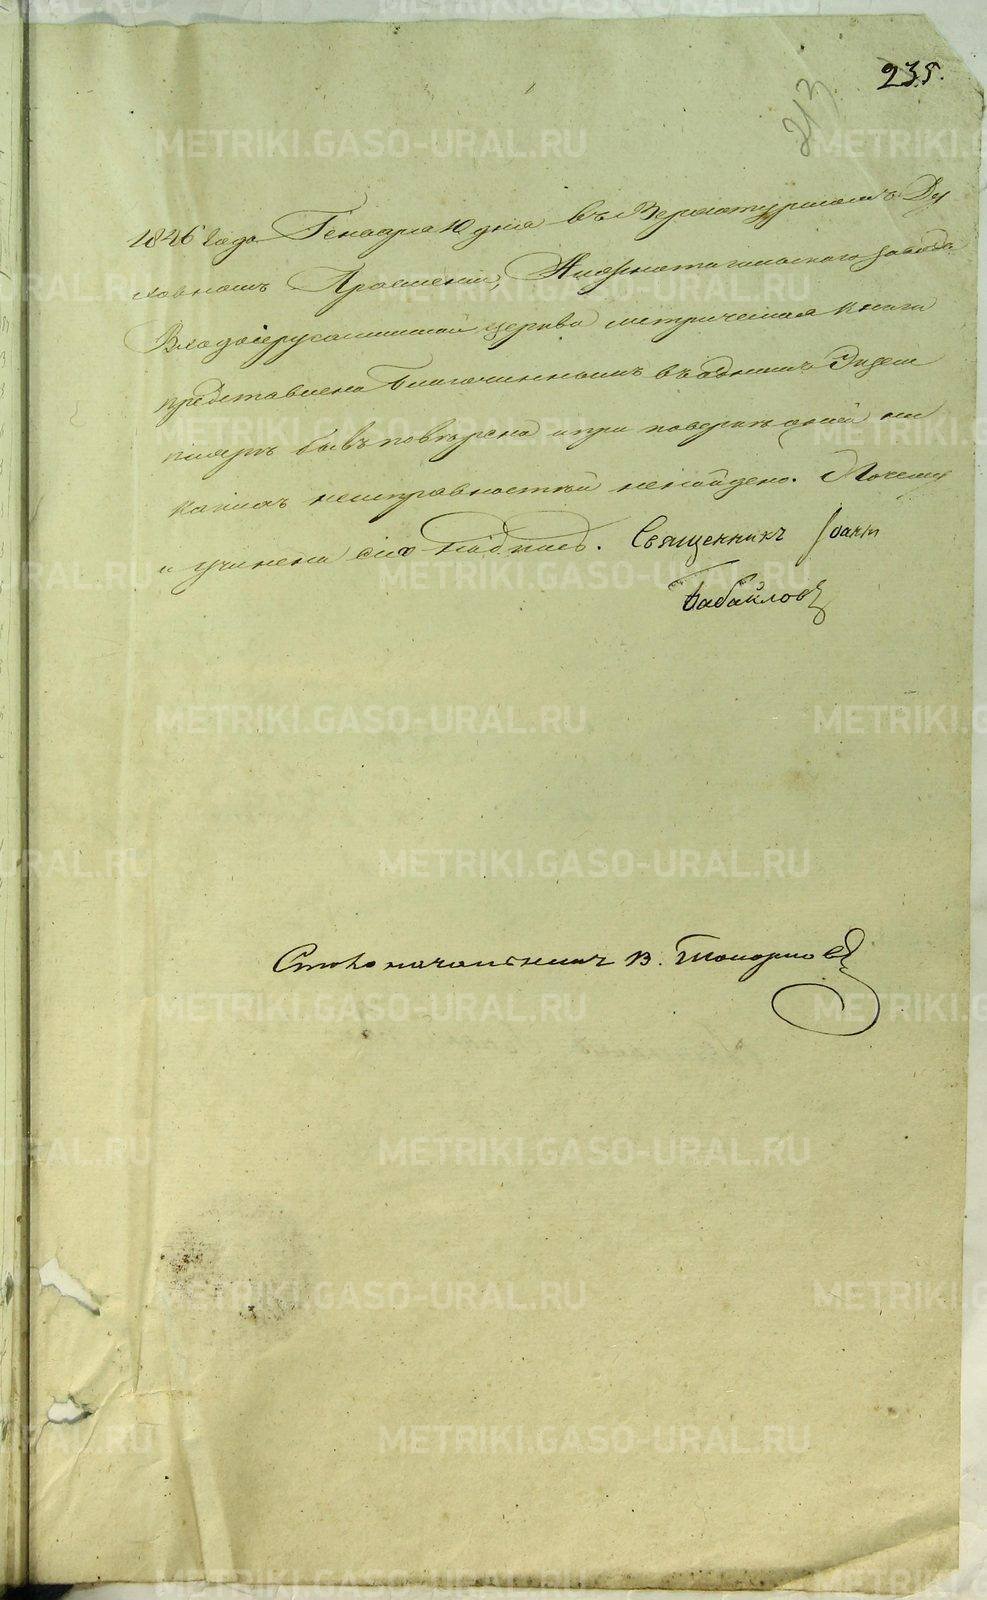 235.
213
1846 года Генваря 10 дня въ Верхотурскомъ Ду
ховномъ Правлении, Нижнетагильскаго завода
Входоіерусалимской церкви метрическая книга
представлена Благочиннымъ въ одномъ Экзем
плярѣ бывъ повѣрена и при повѣркѣ оной ни
какихъ неисправностей ненайдено. Почему
и учинена сия надпись. Священникъ Іоаннъ
Бабайловъ
Столоначальникъ В. Топорковъ
METRIKI.GASO-URAL.RU